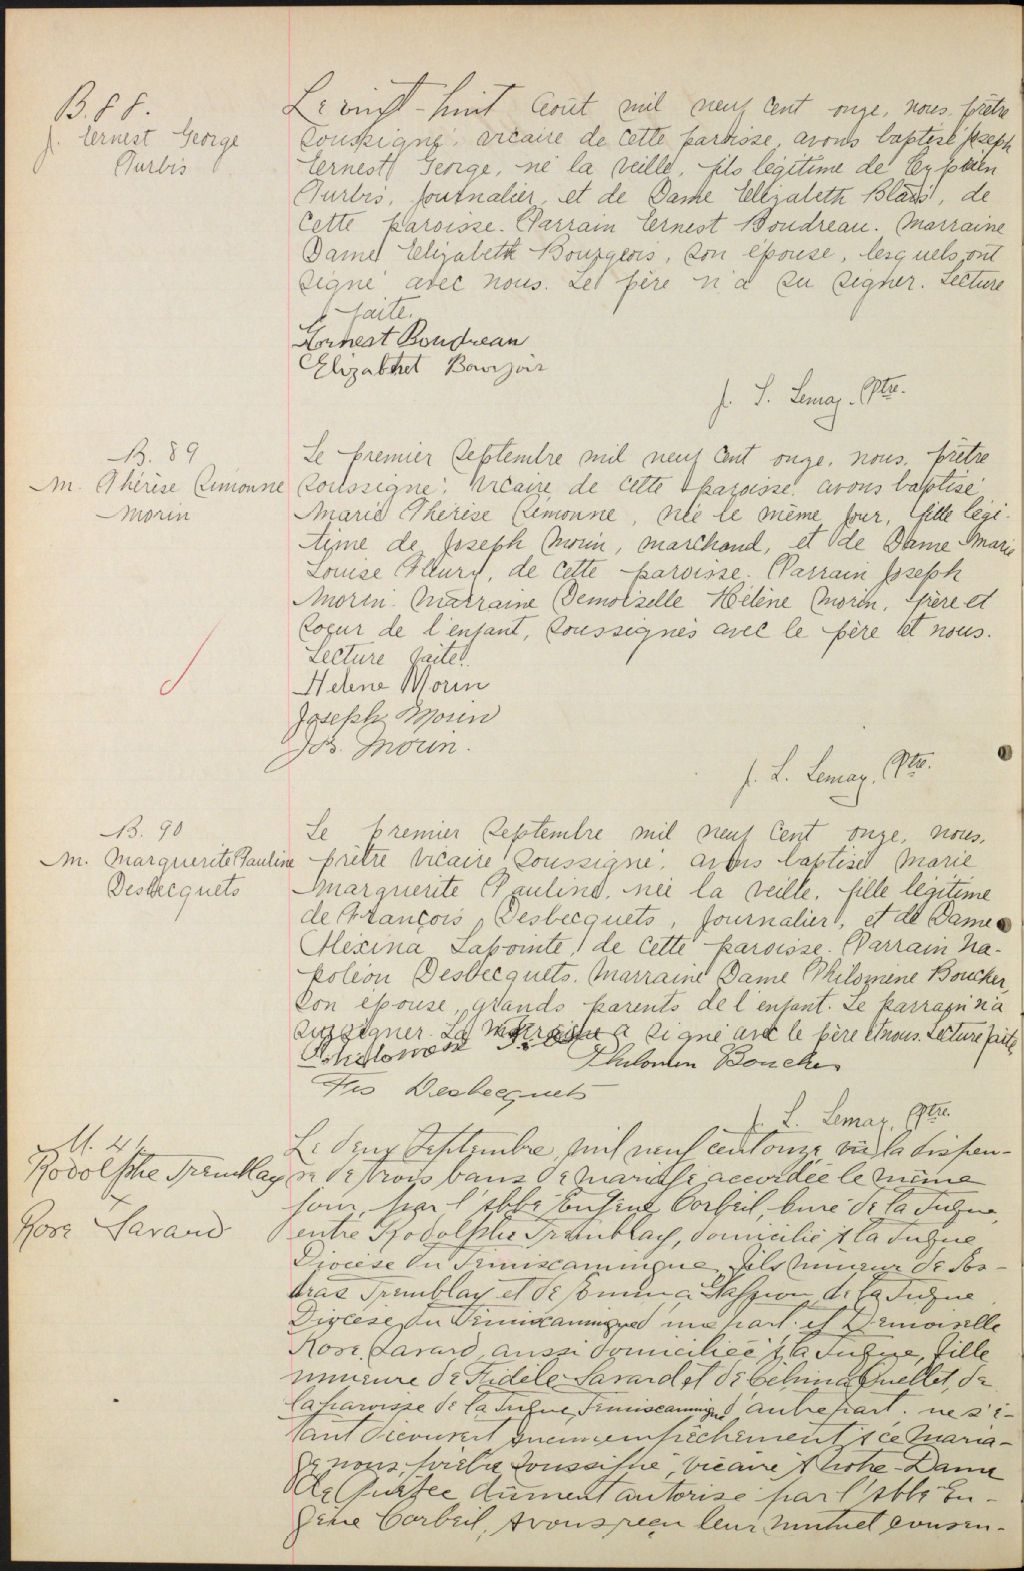 B. 88.
J. Ernest George
Turbis
Le vingt-huit Août mil neuf cent onze, nous, prêtre
soussigné, vicaire de cette paroisse, avons baptisé Joseph
Ernest George, né la veille, fils légitime de Cyprien
Turbis, journalier, et de Dame Elizabeth Blais, de
cette paroisse. Parrain Ernest Boudreau. Marraine
Dame Elizabeth Bourgeois, son épouse, lesquels ont
signé avec nous. Le père n'a su signer. Lecture
faite.
Ernest Boudreau
Elizabthet Bourjois
J. L. Lemay. Ptre.
B. 89
M. Thérèse Simonne
Morin
Le premier Septembre mil neuf cent onze, nous, prêtre
soussigné, vicaire de cette paroisse, avons baptisé
Marie Thérèse Simonne, née le même jour, fille légi-
time de Joseph Morin, marchand, et de Dame Marie
Louise Fleury, de cette paroisse. Parrain Joseph
Morin. Marraine Demoiselle Hélène Morin, frère et
soeur de l'enfant, soussignés avec le père et nous.
Lecture faite.
Helene Morin
Joseph Morin
Jos. Morin.
J. L. Lemay. Ptre.
B. 90
M. Marguerite Pauline
Desbecquets
Le premier Septembre mil neuf cent onze, nous,
prêtre vicaire soussigné, avons baptisé Marie
Marguerite Pauline, née la veille, fille légitime
de François Desbecquets, journalier, et de Dame
Aléxina Lapointe, de cette paroisse. Parrain Na-
poléon Desbecquets. Marraine Dame Philomène Boucher,
son épouse, grands parents de l'enfant. Le parrain n'a
su signer. La marraine a signé avec le père et nous. Lecture faite.
Philomen Boucher
Frs Desbecquets
J. L. Lemay, Ptre.
M. 42
Rodolphe Tremblay
x
Rose Savard
Le deux Septembre, mil neuf cent onze, vu la dispen-
se de trois bans de mariage accordée le même
jour, par l'Abbé Eugène Corbeil, curé de la Tuque,
entre Rodolphe Tremblay, domicilié à la Tuque,
Diocèse du Temiscamingue, fils mineur de Es-
dras Tremblay et de Emma, de la Tuque,
Diocèse du Temiscamingue d'une part, et Demoiselle
Rose Savard, aussi domiciliée à la Tuque, fille
mineure de Fidèle Savard et de Célina Ouellet, de
la paroisse de la Tuque, Temiscamingue d'autre part. ne s'é-
tant découvert aucun empêchement à ce maria-
ge nous, prêtre soussigné, vicaire à Notre-Dame
de Québec dûment autorisé par l'Abbé Eu-
gène Corbeil, avons reçu leur mutuel consen-